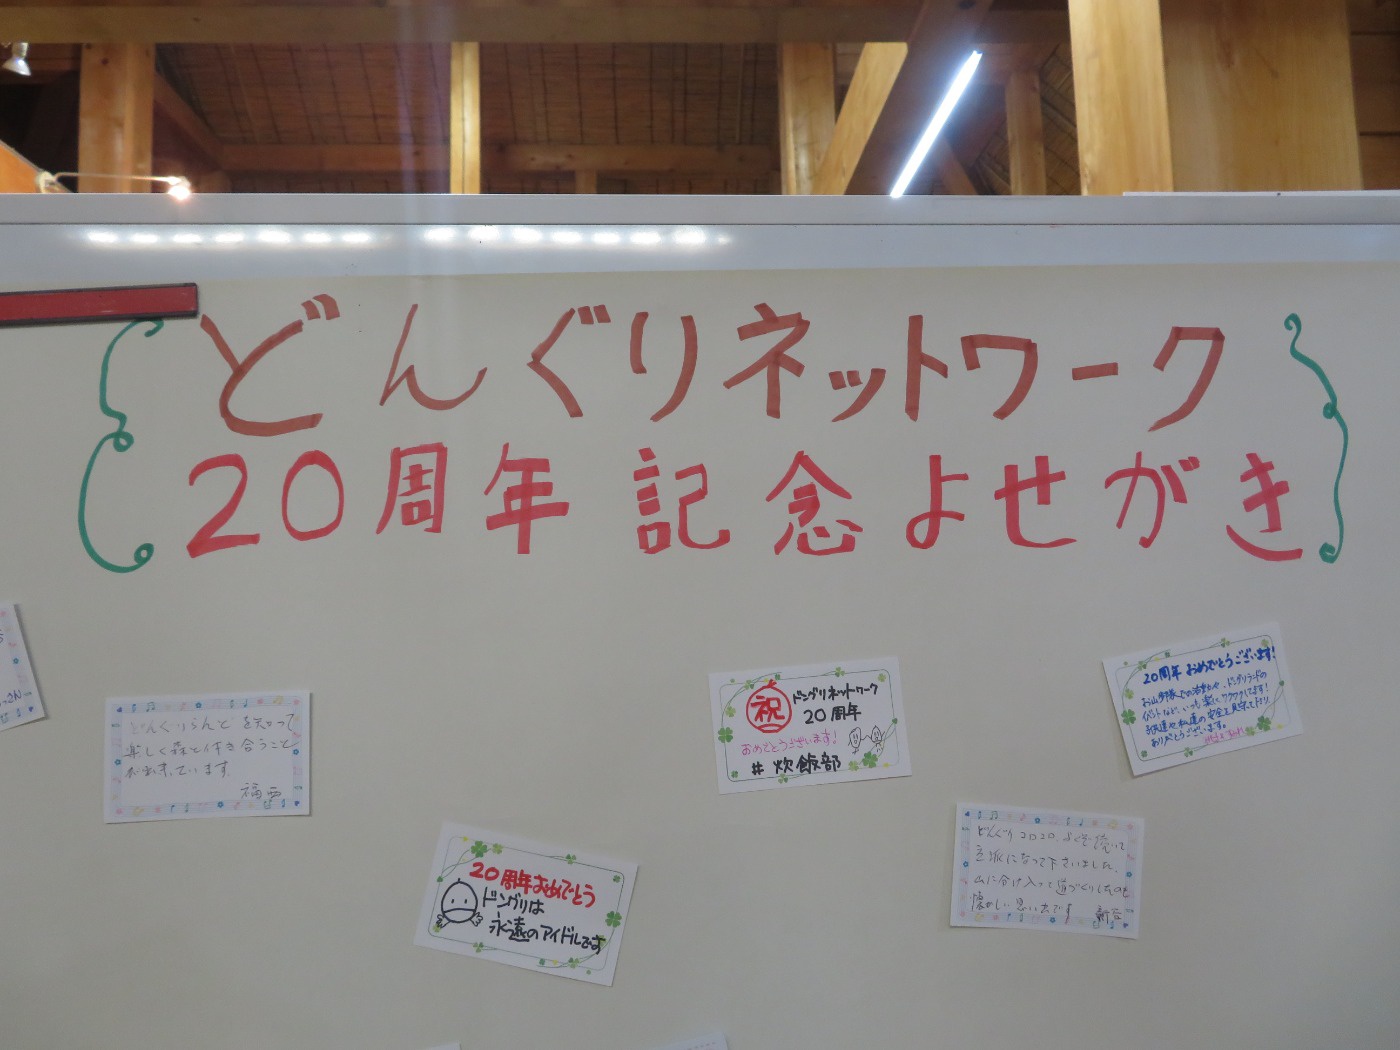 どんぐりネットワーク
20周年記念よせがき
どんぐりらんどを知って
楽しく森と付き合うこと
が出来ています。
福西
20周年おめでとう
ドングリは
永遠のアイドルです
祝
ドングリネットワーク
20周年
おめでとうございます!
# 炊飯部
20周年 おめでとうございます!
お山歩隊での活動や、ドングリランドの
イベントなど、いつも楽しくワクワクしてます!
子供達や私達の安全を見守って下さり
ありがとうございます。
どんぐりコロコロ、よくぞ続いて
立派になって下さいました。
山に分け入って道づくりしたのも
懐かしい思い出です
さん